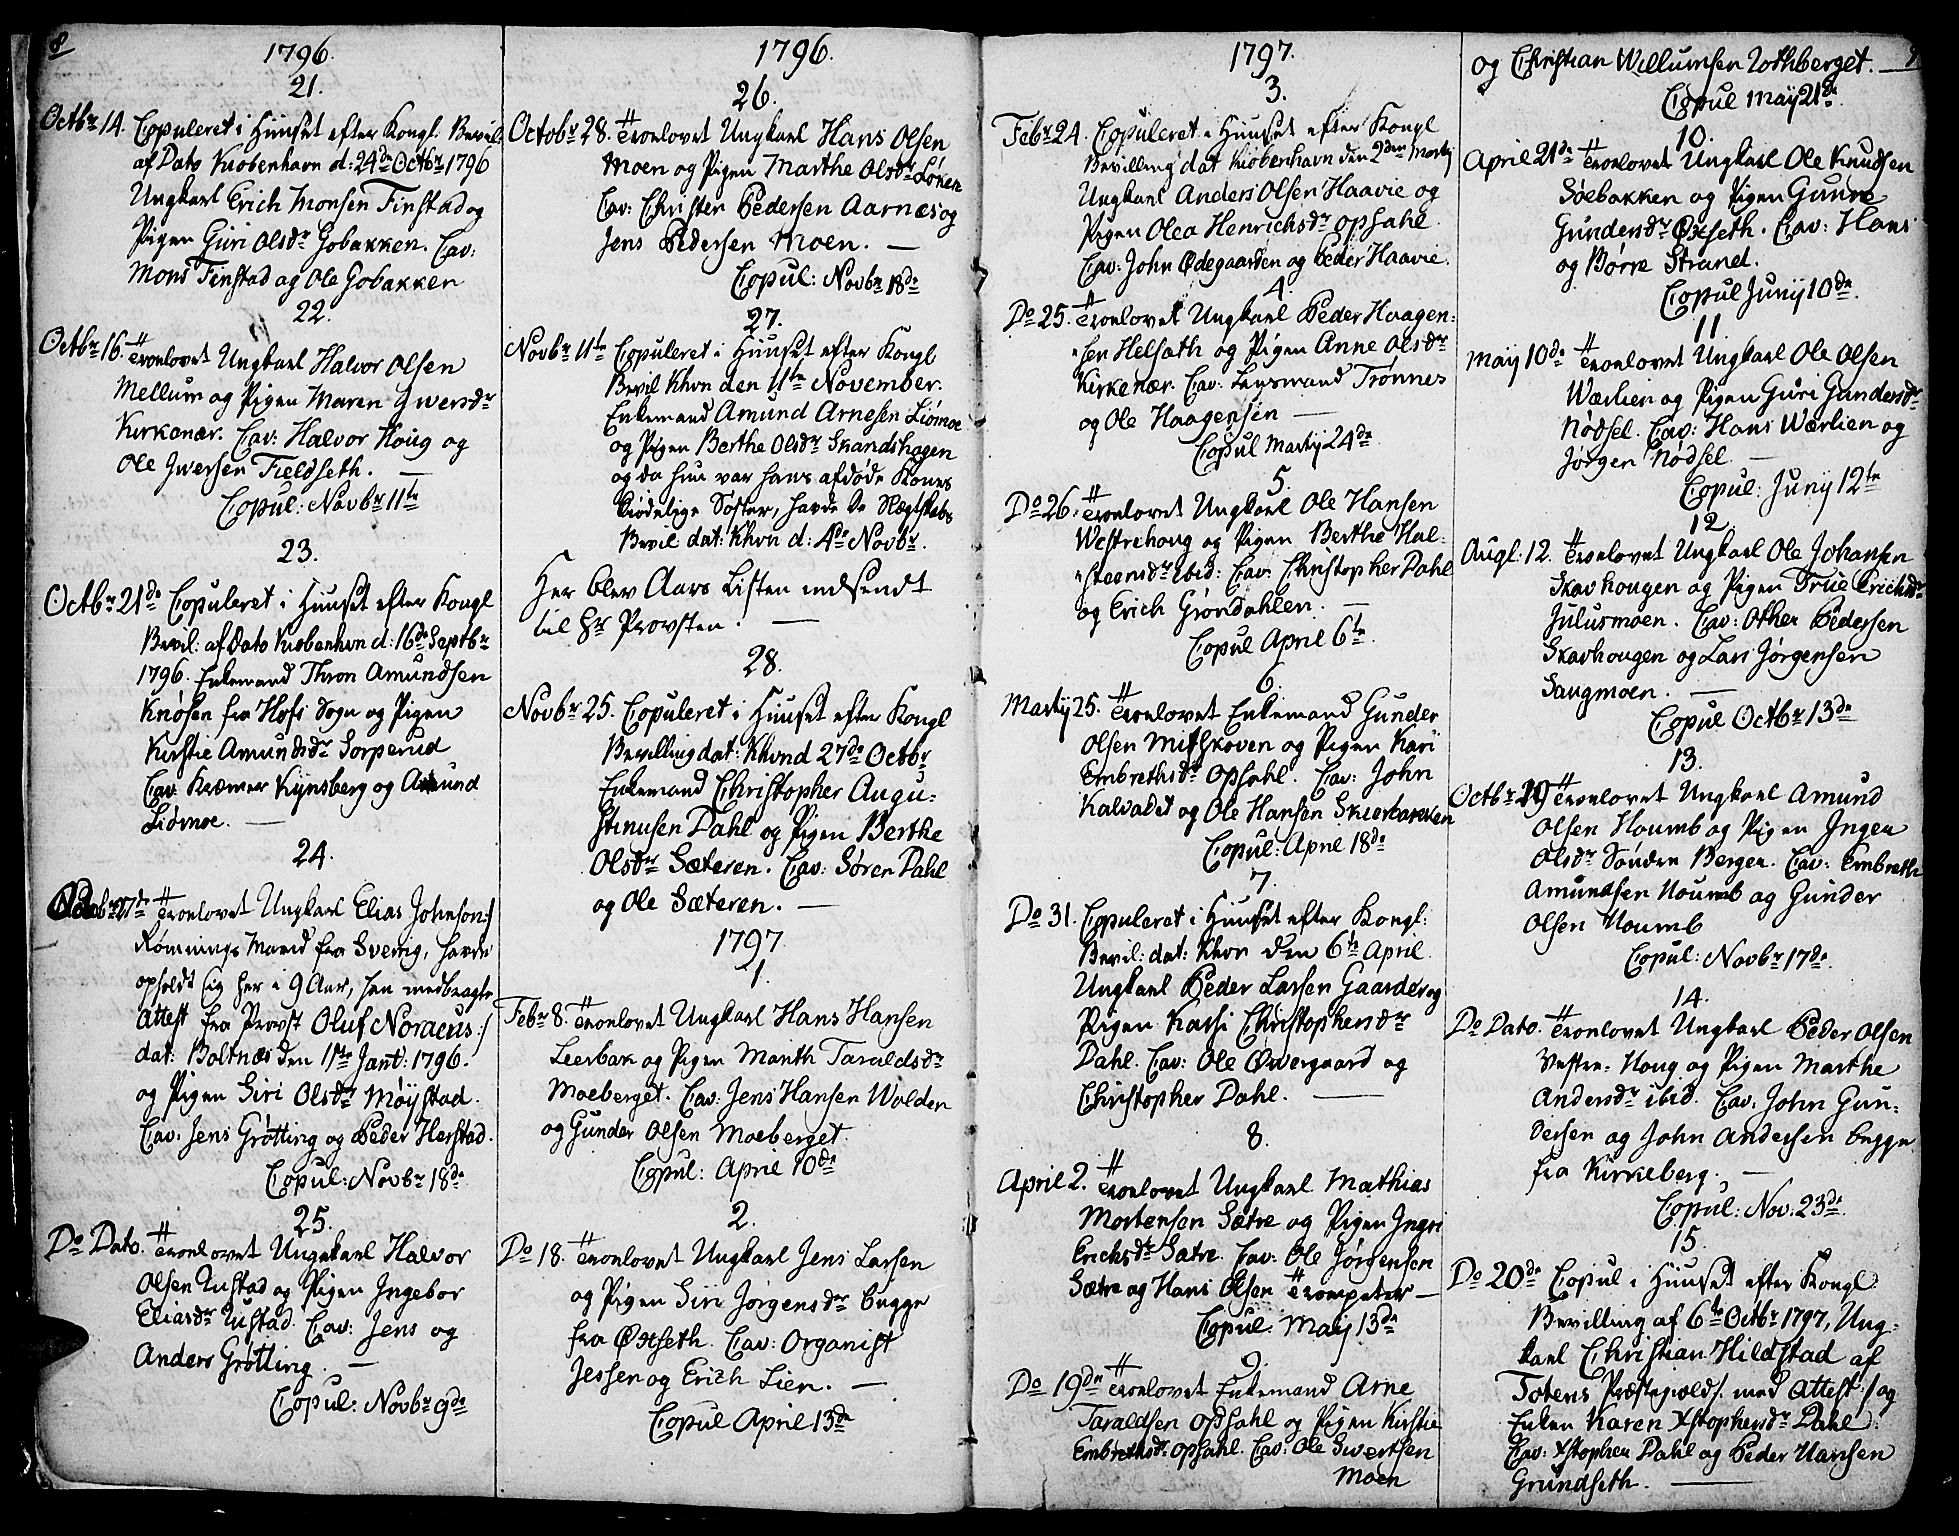 8
1796.
21.
Octbr 14. Copuleret i Huuset efter Kongl. Bevil:
af Dato Kiobenhavn d: 24de Octbr 1796
Ungkarl Erich Monsen Finstad og
Pigen Guri Olsdr Gobakken. Cav:
Mons Finstad og Ole Gobakken
22.
Octbr 16. Troelovet Ungkarl Halvor Olsen
Mellum og Pigen Maren Iwersdr
Kirkenær. Cav: Halvor Houg og
Ole Iwersen Fieldseth. —
Copul: Novbr 11te
23.
Octbr 21de Copuleret i Huuset efter Kongl
Bevil: af Dato Kiobenhvn d: 16de Septbr
1796. Enkemand Thron Amundsen
Knøsen fra Hofs Sogn og Pigen
Kirstie Amundsdr Sorperud
Cav: Kræmer Kynsberg og Amund
Liømoe. —
24.
27de Troelovet Ungkarl Elias Johnson :/
Rømnings Mand fra Sverrig, havde
opholdt sig her i 9 Aar, han medbragte
Attest fra Provst Oluf Noræus :/
dat: Boltnæs den 11te Janr: 1796.
og Pigen Siri Olsdr Møystad.
Cav: Jens Grøtting og Peder Herstad.
Copul: Novbr 18de
25.
Do Dato. Troelovet Ungkarl Halvor
Olsen Ustad og Pigen Ingebor
Eliasdr Ustad. Cav: Jens og
Anders Grøtting. —
Copul: Novbr 9de
1796.
26.
Octobr 28. Troelovet Ungkarl Hans Olsen
Moen og Pigen Marthe Olsdr Løken
Cav: Christen Pedersen Aarnæs og
Jens Pedersen Moen. —
Copul: Novbr 18de
27.
Novbr 11te Copuleret i Huuset efter Kongl
Bevil Khvn den 11te November.
Enkemand Amund Arnesen Liømoe
og Pigen Berthe Olsdr Skandshagen
og da hun var hans afdøde Kones
kiødelige Søster, havde de Slægtskabs
Bevil dat: Khvn d: 4de Novbr.
Her blev Aars Listen indsendt
til Hr Provsten. —
28.
Novbr 25. Copuleret i Huuset efter Kongl
Bevilling dat: Khvn d 27de Octbr
Enkemand Christopher Augu-
stinusen Dahl og Pigen Berthe
Olsdr Sæteren. Cav: Søren Dahl
og Ole Sæteren. —
1797
1.
Febr 8. Troelovet Ungkarl Hans Hansen
Leerbak og Pigen Marith Taraldsdr
Moeberget. Cav: Jens Hansen Wolden
og Gunder Olsen Moeberget.
Copul: April 10de
2.
Do 18. Troelovet Ungkarl Jens Larsen
og Pigen Siri Jørgensdr begge
fra Øxseth. Cav: Organist
Jessen og Erich Lien. —
Copul April 13de
1797.
3.
Febr 24. Copuleret i Huuset efter Kongl
Bevilling dat Kiobenhavn den 2den Martij
Ungkarl Anders Olsen Haavie og
Pigen Olea Henrichsdr Opsahl.
Cav: John Ødegaarden og Peder Haavie.
4.
Do 25. Troelovet Ungkarl Peder Haagen:
sen Helsæth og Pigen Anne Olsdr
Kirkenær. Cav: Lensmand Trønnes
og Ole Haagensen —
Copul Martij 24de
5.
Do 26. Troelovet Ungkarl Ole Hansen
Westrehoug og Pigen Berthe Hal:
steensdr ibid: Cav: Christopher Dahl
og Erich Grøndahlen. —
Copul April 6te
6
Martij 25. Troelovet Enkemand Gunder
Olsen Mitskoven og Pigen Kari
Embrethsdr Opsahl. Cav: John
Kalvadet og Ole Hansen Skierbækken
Copul: April 18de
7.
Do 31. Copuleret i Huuset efter Kongl:
Bevil: dat: Khvn den 6te April.
Ungkarl Peder Larsen Gaarder og
Pigen Karsi Christophersdr
Dahl. Cav: Ole Øwergaard og
Christopher Dahl. —
8.
April 2. Troelovet Ungkarl Mathias
Mortensen Sætre og Pigen Ingri
Erichsdr Sætre. Cav: Ole Jørgensen
Sætre og Hans Olsen Trompeter —
Copul: Maij 13de
9.
Do 19de Troelovet Enkemand Arne
Taraldsen Opsahl og Pigen Kirstie
Embrethsdr Opsahl. Cav: Ole Swertsen
Moen
9
og Christian Willumsen Rothberget. —
Copul Maij 21de
10.
April 21de Troelovet Ungkarl Ole Knudsen
Soebakken og Pigen Gunne
Gundersdr Øxseth. Cav: Hans
og Børre Strand.
Copul Junij 10de.
11
Maij 10de Troelovet Ungkarl Ole Olsen
Wærlien og Pigen Guri Gundersdr
Nødsel. Cav: Hans Wærlien og
Jørgen Nødsel —
Copul: Junij 12te
12.
Augl: 12. Troelovet Ungkarl Ole Johansen
Skavhougen og Pigen True Erichsdr
Julusmoen. Cav: Other Pedersen
Skavhougen og Lars Jørgensen
Saugmoen. —
Copul Octbr 13de
13.
Octbr 29 Troelovet Ungkarl Amund
Olsen Houmb og Pigen Ingen
Olsdr Søndre Bergen. Cav: Embreth
Amundsen Houmb og Gunder
Olsen Houmb
Copul: Novbr 17de.
14.
Do Dato. Troelovet Ungkarl Peder Olsen
Vestre-Houg og Pigen Marthe
Andersdr ibid. Cav: John Gun:
dersen og John Andersen begge
fra Kirkeberg. —
Copul: Nov: 23de
15.
Do 20de Copul i Huuset efter Kongl
Bevilling af 6te Octbr 1797, Ung-
karl Christian Hildstad af
Totens Præstegield /: med Attest :/ og
Enken Karen Xstophersdr Dahl.
Cav: Xstopher Dahl og Peder Hansen
Grundseth. —